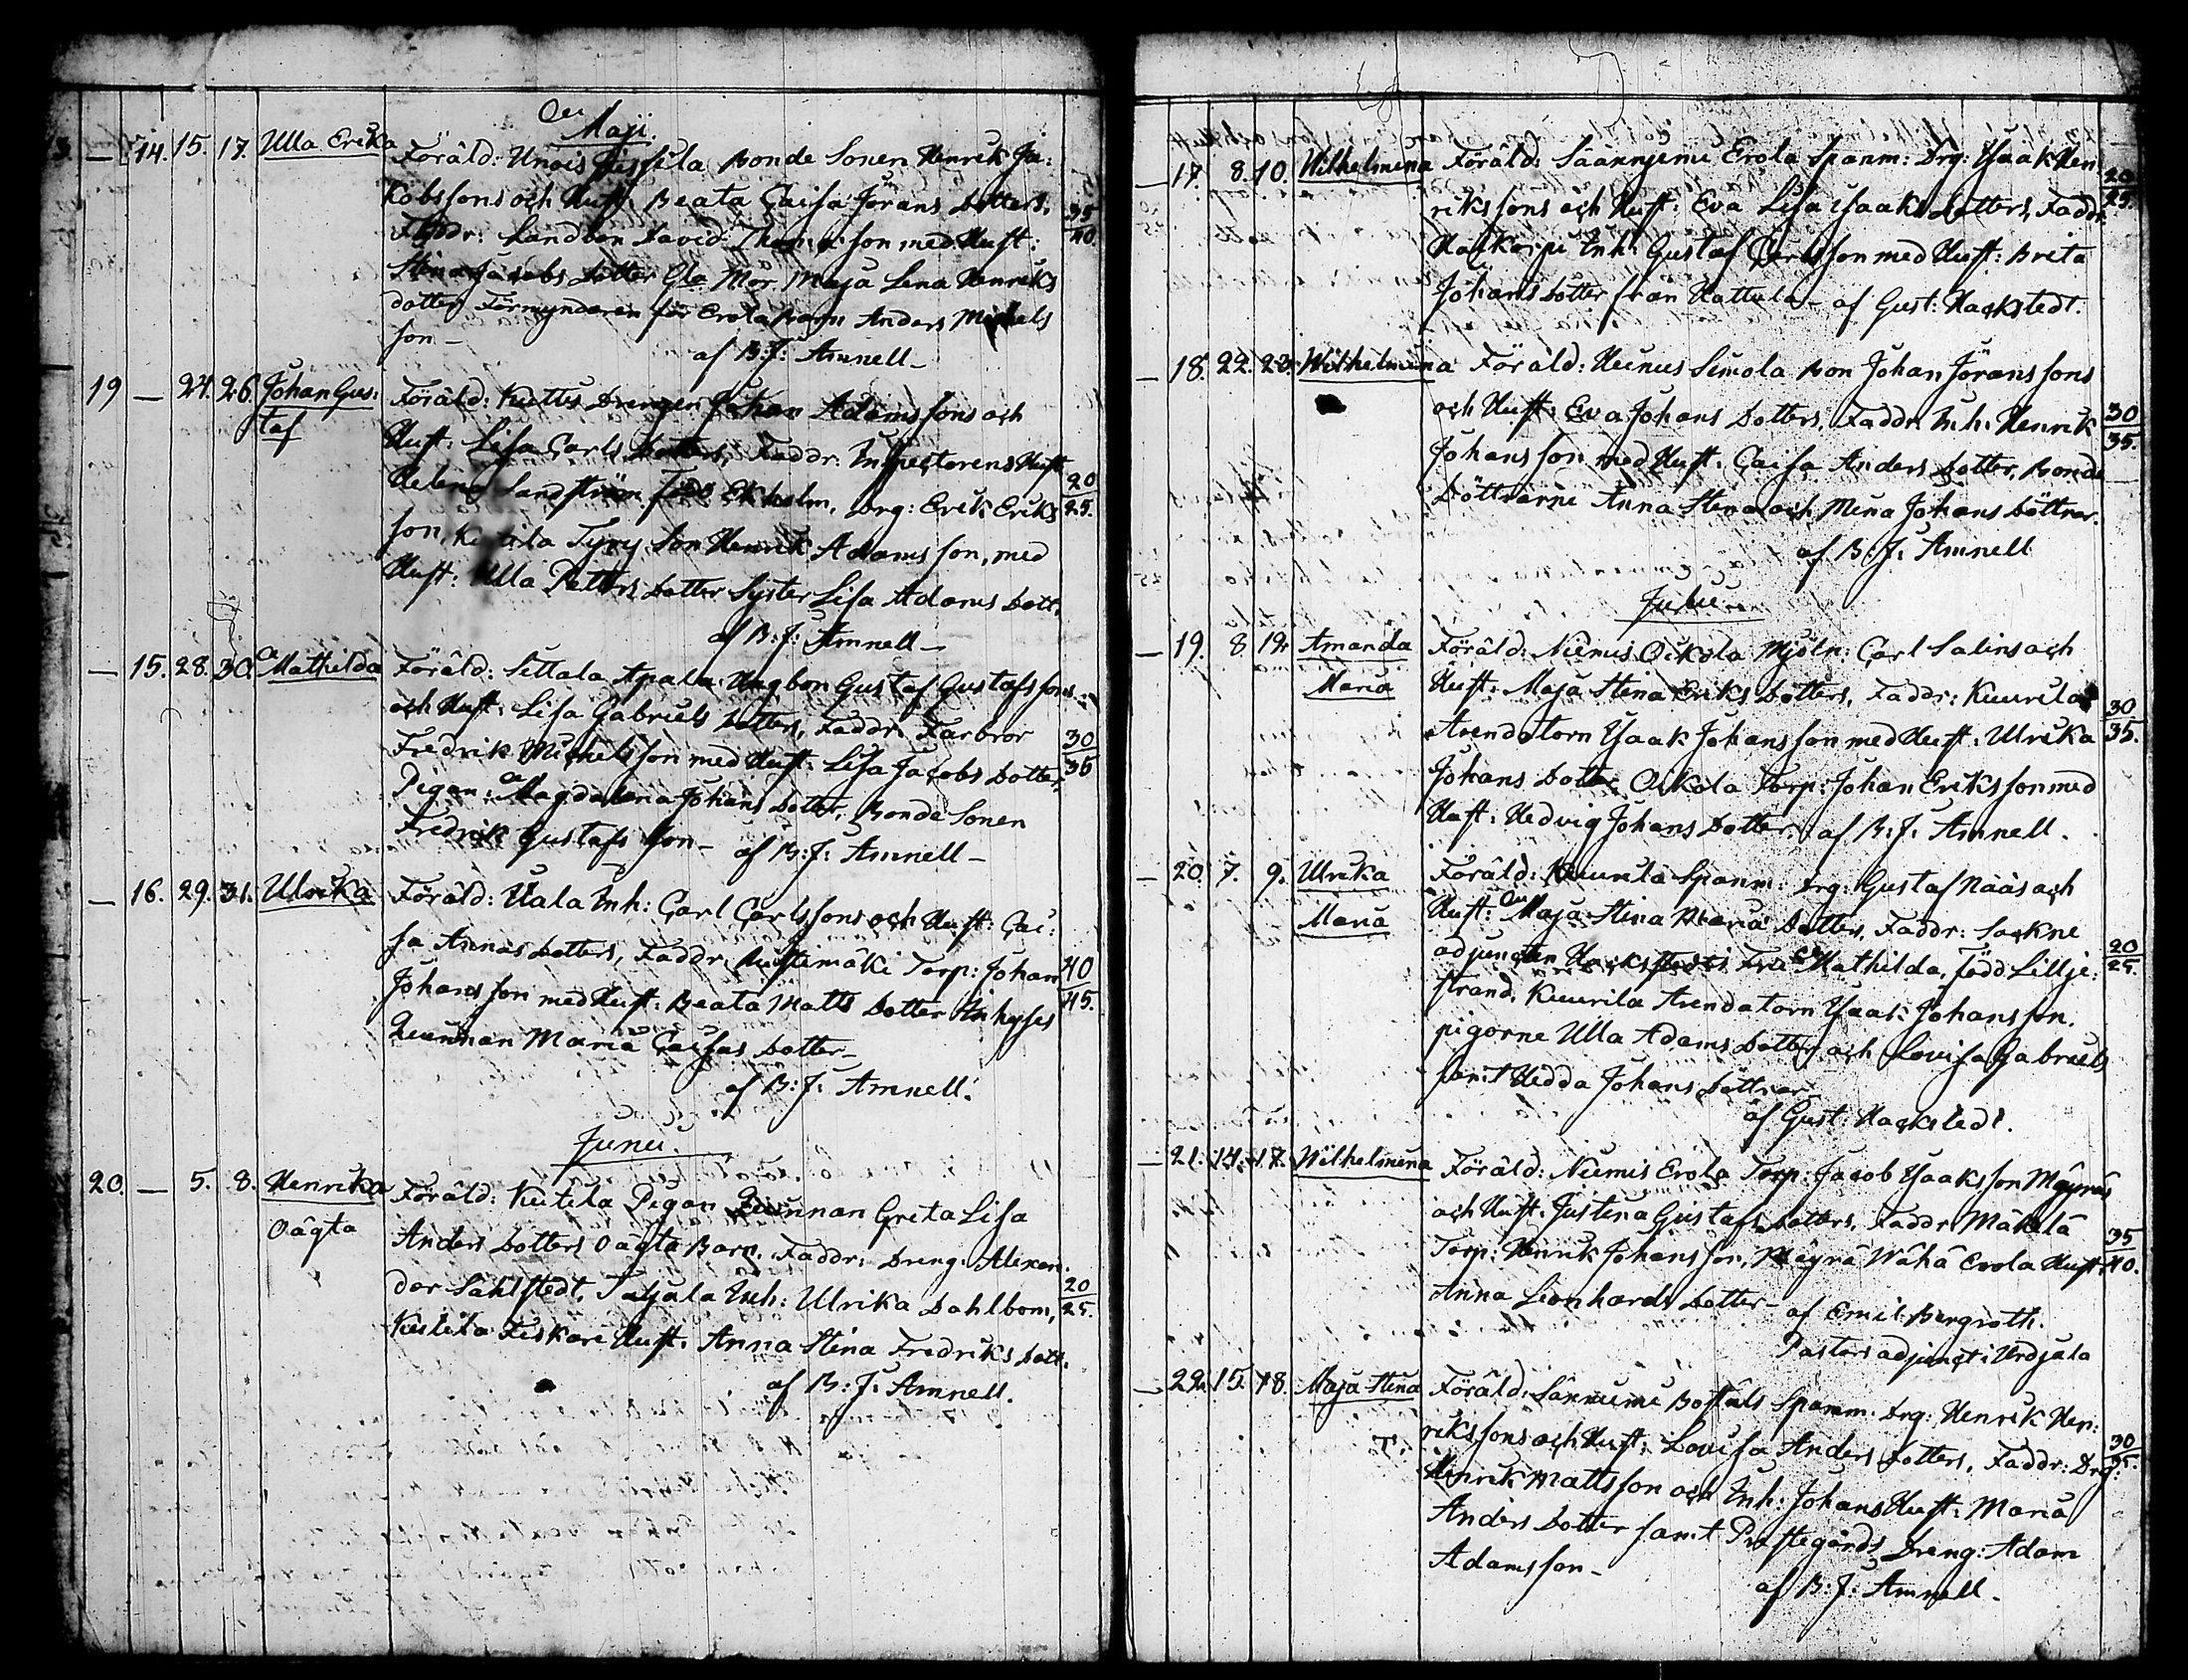 Maji.
— 14. 15. 17. Ulla Erika Föräld: Bonde Sonen Henrik Ja:
kobssons och Hust: Beata Caisa Jörans dotters, 35
Faddr: Landbon David son med Hust: 40
Stina Jacobs dotter Gla Mor Maja Lena Henriks
dotter Förmyndaren för Erola Barn Anders Michels
son —
af B: J: Amnell —
19 — 24. 26. Johan Gus: Föräld: Drengen Johan Adamssons och
taf Hust: Lisa Carls dotters, Faddr: Inspectorens Hust 20
Helena Sandström född Ekholm, Drg: Erik Eriks 25.
son, Tyry Son Henrik Adams son, med
Hust: Ulla Petters dotter Syster Lisa Adams dott.
af B: J: Amnell —
— 15. 28. 30. Mathilda Föräld: Sittala Apala Gustaf Gustafssons
och Hust: Lisa Gabriels dotters, Faddr: Farbror 30
Fredrik Michelsson med Hust: Lisa Jacobs dotter, 35
Pigan: Magdalena Johans dotter, Bonde Sonen
Fredrik Gustafs son — af B: J: Amnell —
— 16. 29. 31. Ulrika Föräld: Uala Inh: Carl Carlssons och Hust: Cai:
sa Annas dotters, Faddr: Torp: Johan 40
Johansson med Hust: Beata Matts dotter Inhyses 45.
Qvinnan Maria Caisas dotter —
af B: J: Amnell.
Junii
20. — 5. 8. Henrika Föräld: Kutila Pigan Qvinnan Greta Lisa
Oägta Anders dotters Oägta Barn. Faddr: Dreng: Alexan:
der Sahlstedt, Inh: Ulrika Dahlbom, 20
Kutila Fiskare Hust: Anna Stina Fredriks dott. 25.
af B: J: Amnell.
— 17. 8. 10. Wilhelmina Föräld: Säännjemi Erola Spanm: Drg: Isaak Hen 20
rikssons och Hust: Eva Lisa Isaaks dotters, Faddr: 25.
Inh: Gustaf Carlsson med Hust: Brita
Johans dotter från Hattula — af Gust: Hackstedt.
— 18. 22. 23. Wilhelmina Föräld: Simola Bon Johan Jöranssons
och Hust: Eva Johans dotters, Faddr: Inh: Henrik 30
Johansson med Hust: Caisa Anders dotter, Bonde 35.
Döttrarne Anna Stina och Mina Johans döttrar.
af B: J: Amnell
— 19. 8 Amanda Föräld: Niemis Oikola Mjöln: Carl Salins och
Maria Hust: Maja Stina Eriks dotters, Faddr: Kuurila 30
Arendatorn Isaak Johansson med Hust: Ulrika 35.
Johans dotter Oikola Torp: Johan Eriksson med
Hust: Hedvig Johans dotter. af B: J: Amnell.
— 20. 7. 9. Ulrika Föräld: Kuurila Spanm: Drg: Gustaf och
Maria Hust: Maja Stina Maria dotters, Faddr: Sockne
adjuncten Hackstedts Fru Mathilda, född Lillje: 20
strand, Kuurila Arendatorn Isaak Johansson. 25.
pigorne Ulla Adams dotter och Lovisa Gabriels
samt Hedda Johans döttrar
af Gust: Hackstedt.
— 21. 14. 17. Wilhelmina Föräld: Niemis Erola Torp: Jacob Isaaksson Mäyräs
och Hust: Justina Gustafs dotters. Faddr: Mäkelä 35
Torp: Henrik Johansson, Mäyrä Wähä Erola Hust: 40.
Anna Leonhards dotter — af Emil Bergroth.
Pastors adjunct i Urdjala
— 22. 15. 18. Maja Stina Föräld: Spanm: Drg: Henrik Hen:
rikssons och Hust: Lovisa Anders dotters, Faddr: Drg: 30
Henrik Mattsson och Inh: Johans Hust: Maria 35.
Anders dotter samt Prestegårds Dreng: Adam
Adamsson —
af B: J: Amnell.